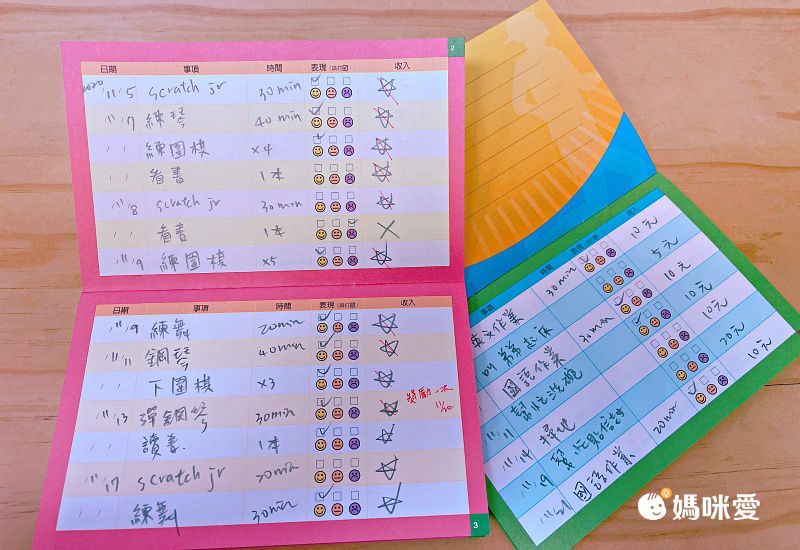 2
日期 事項 時間 表現(請打☑) 收入
2020 11/5 scratch jr 30min ☆
11/7 練琴 40min ☆
" " 練圍棋 x4 ☆
" " 看書 1本 ☆
11/8 scratch jr 30min ☆
看書 1本 ×
11/9 練圍棋 x5 ☆
日期 事項 時間 表現(請打☑) 收入
11/9 練舞 20min ☆
11/11 鋼琴 40min ☆
" " 下圍棋 x3 ☆
11/13 彈鋼琴 30min ☆ 11/20
" " 讀書 1本 ☆
11/17 scratch jr 20min ☆
" " 練舞 30min ☆
3
事項 時間 表現 收入
英文作業 30min 10元
叫弟弟起床 5元
國語作業 30min 10元
11/11 幫忙洗碗 10元
11/14 掃地 20元
11/19 幫忙貼
11/21 國語作業 20min 10元
媽咪愛